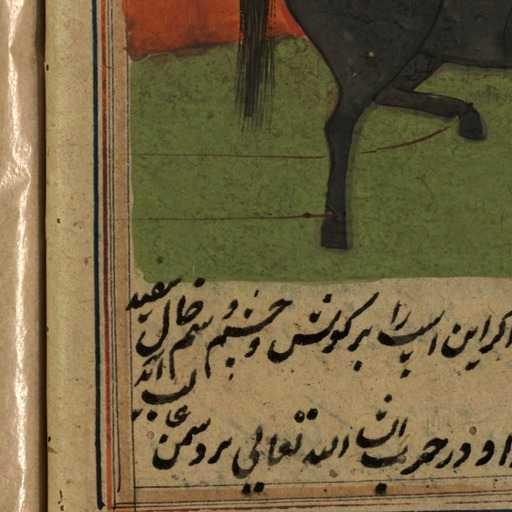 اگر این اسپ را بر گوش و چشم و سم خال سفید
او در حرب انشا الله تعالی بر دشمن غالب آید